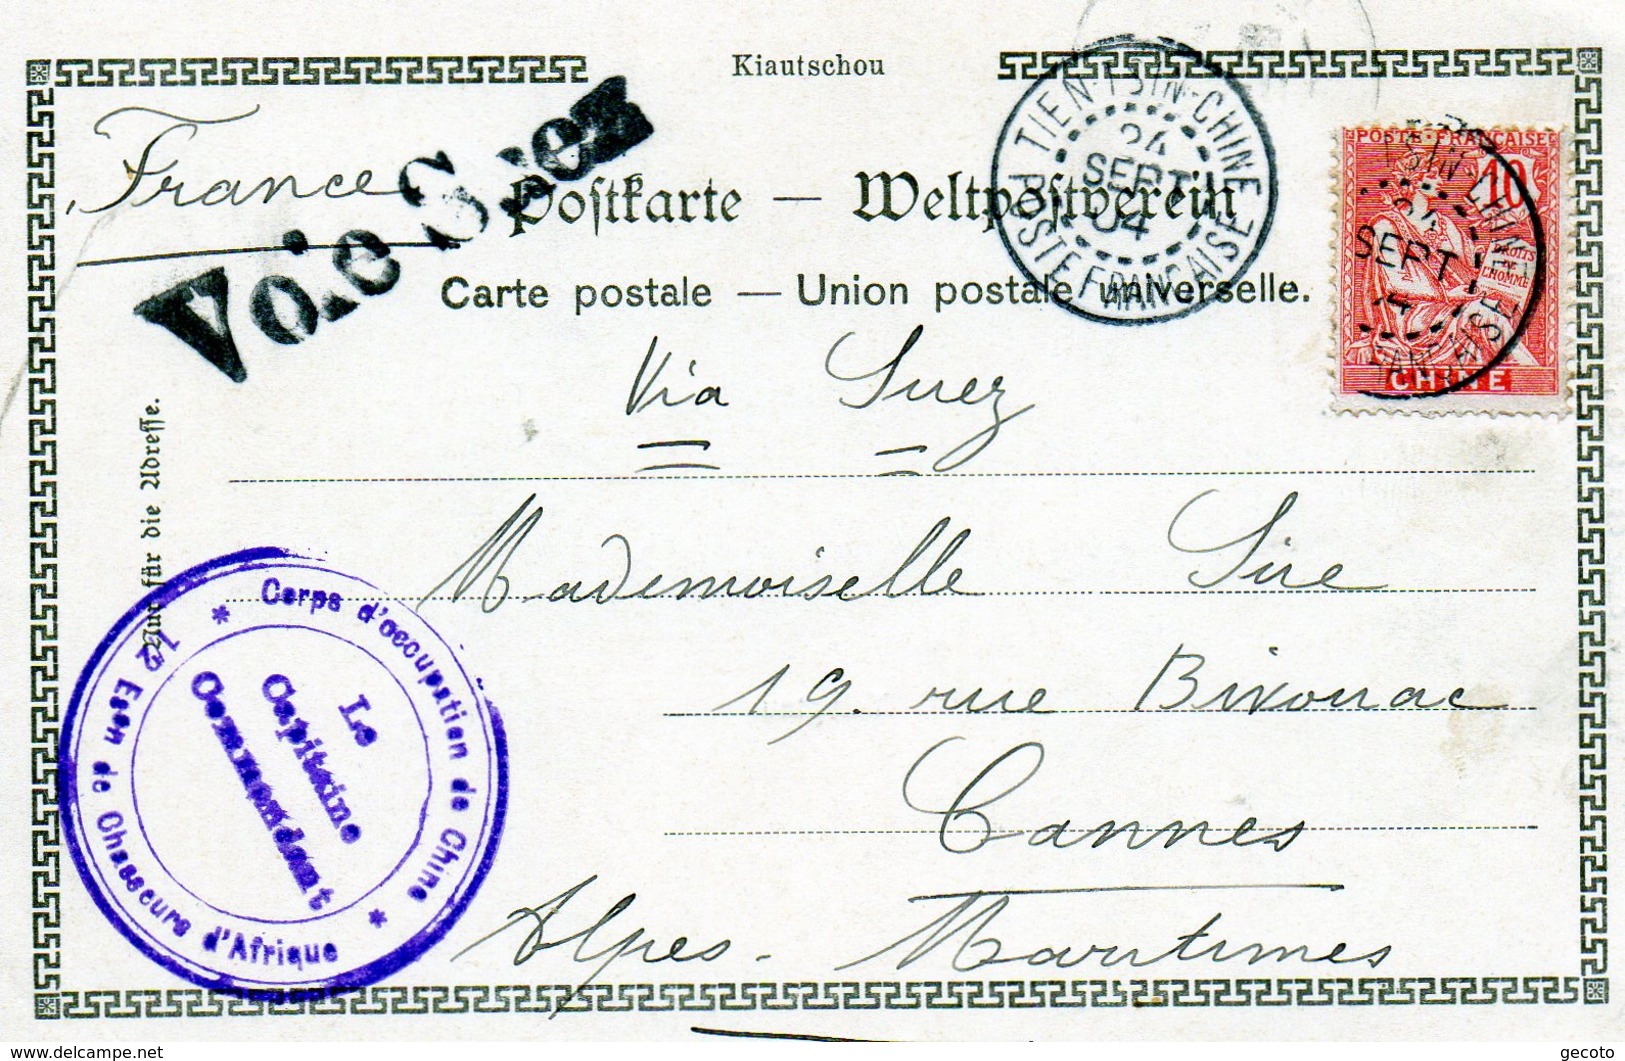 Kiautschou
France
Voie Suez
Postkarte — Weltpostverein
Carte postale — Union postale universelle.
TIEN-TSIN-CHINE
24
SEPT
04
POSTE FRANÇAISE
POSTE FRANÇAISE
10
DROITS
DE
L'HOMME
CHINE
TSIN-CHINE
24
SEPT
FRANÇAISE
Via Suez
Nur für die Adresse.
Mademoiselle Sire
19. rue Bivouac
Cannes
Alpes-Maritimes
Corps d'occupation de Chine
12 Eson de Chasseurs d'Afrique
Le
Capitaine
Commandant
delcampe.net
gecoto